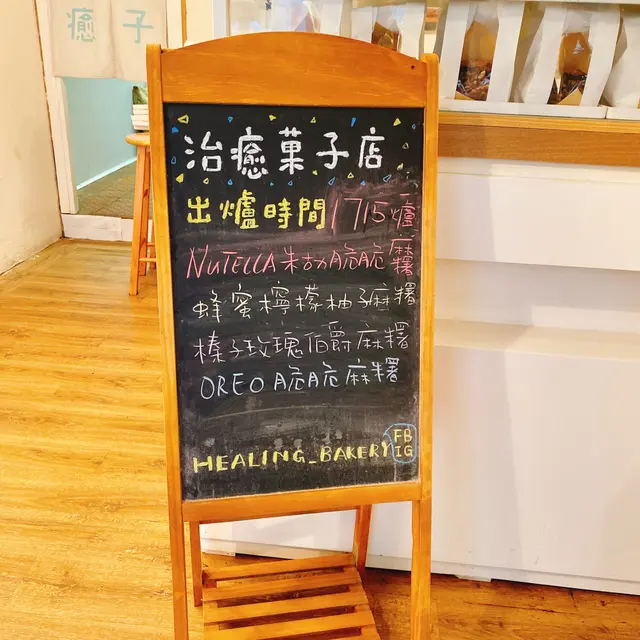 癒子
治癒菓子店
出爐時間 1715爐
NUTELLA 朱古力脆脆麻糬
蜂蜜檸檬柚子麻糬
榛子玫瑰伯爵麻糬
OREO 脆脆麻糬
HEALING_BAKERY FB IG